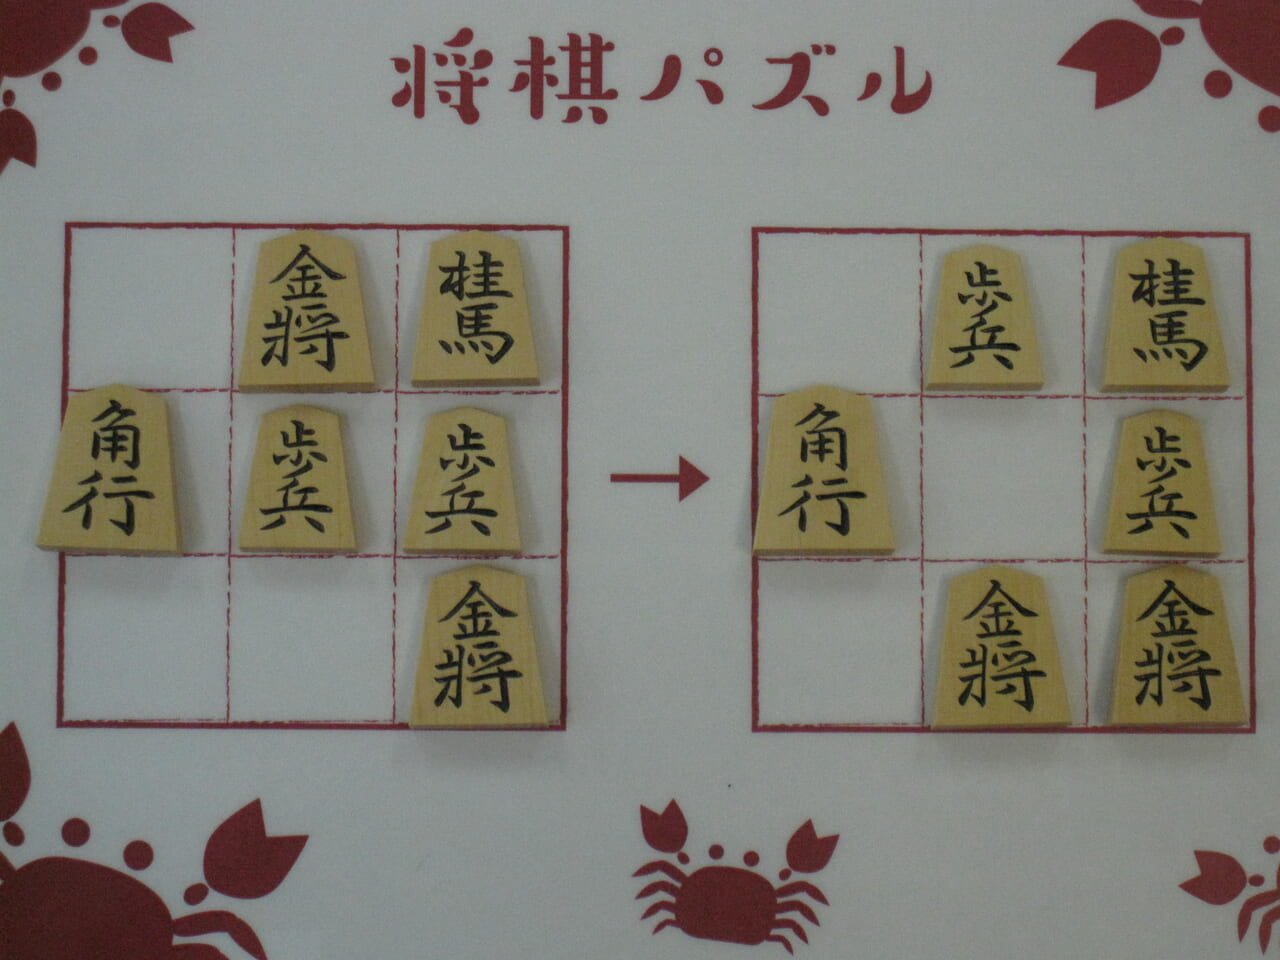 将棋パズル
金将 桂馬
角行 歩兵 歩兵
金将
歩兵 桂馬
角行 歩兵
金将 金将